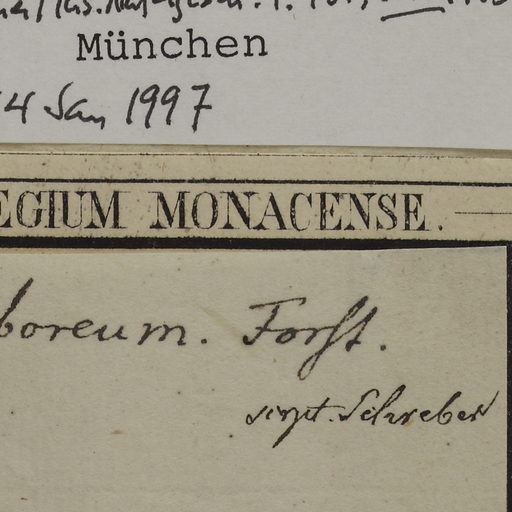 München
4 Jan 1997
EGIUM MONACENSE.
boreum. Forst.
scrpt. Schreber